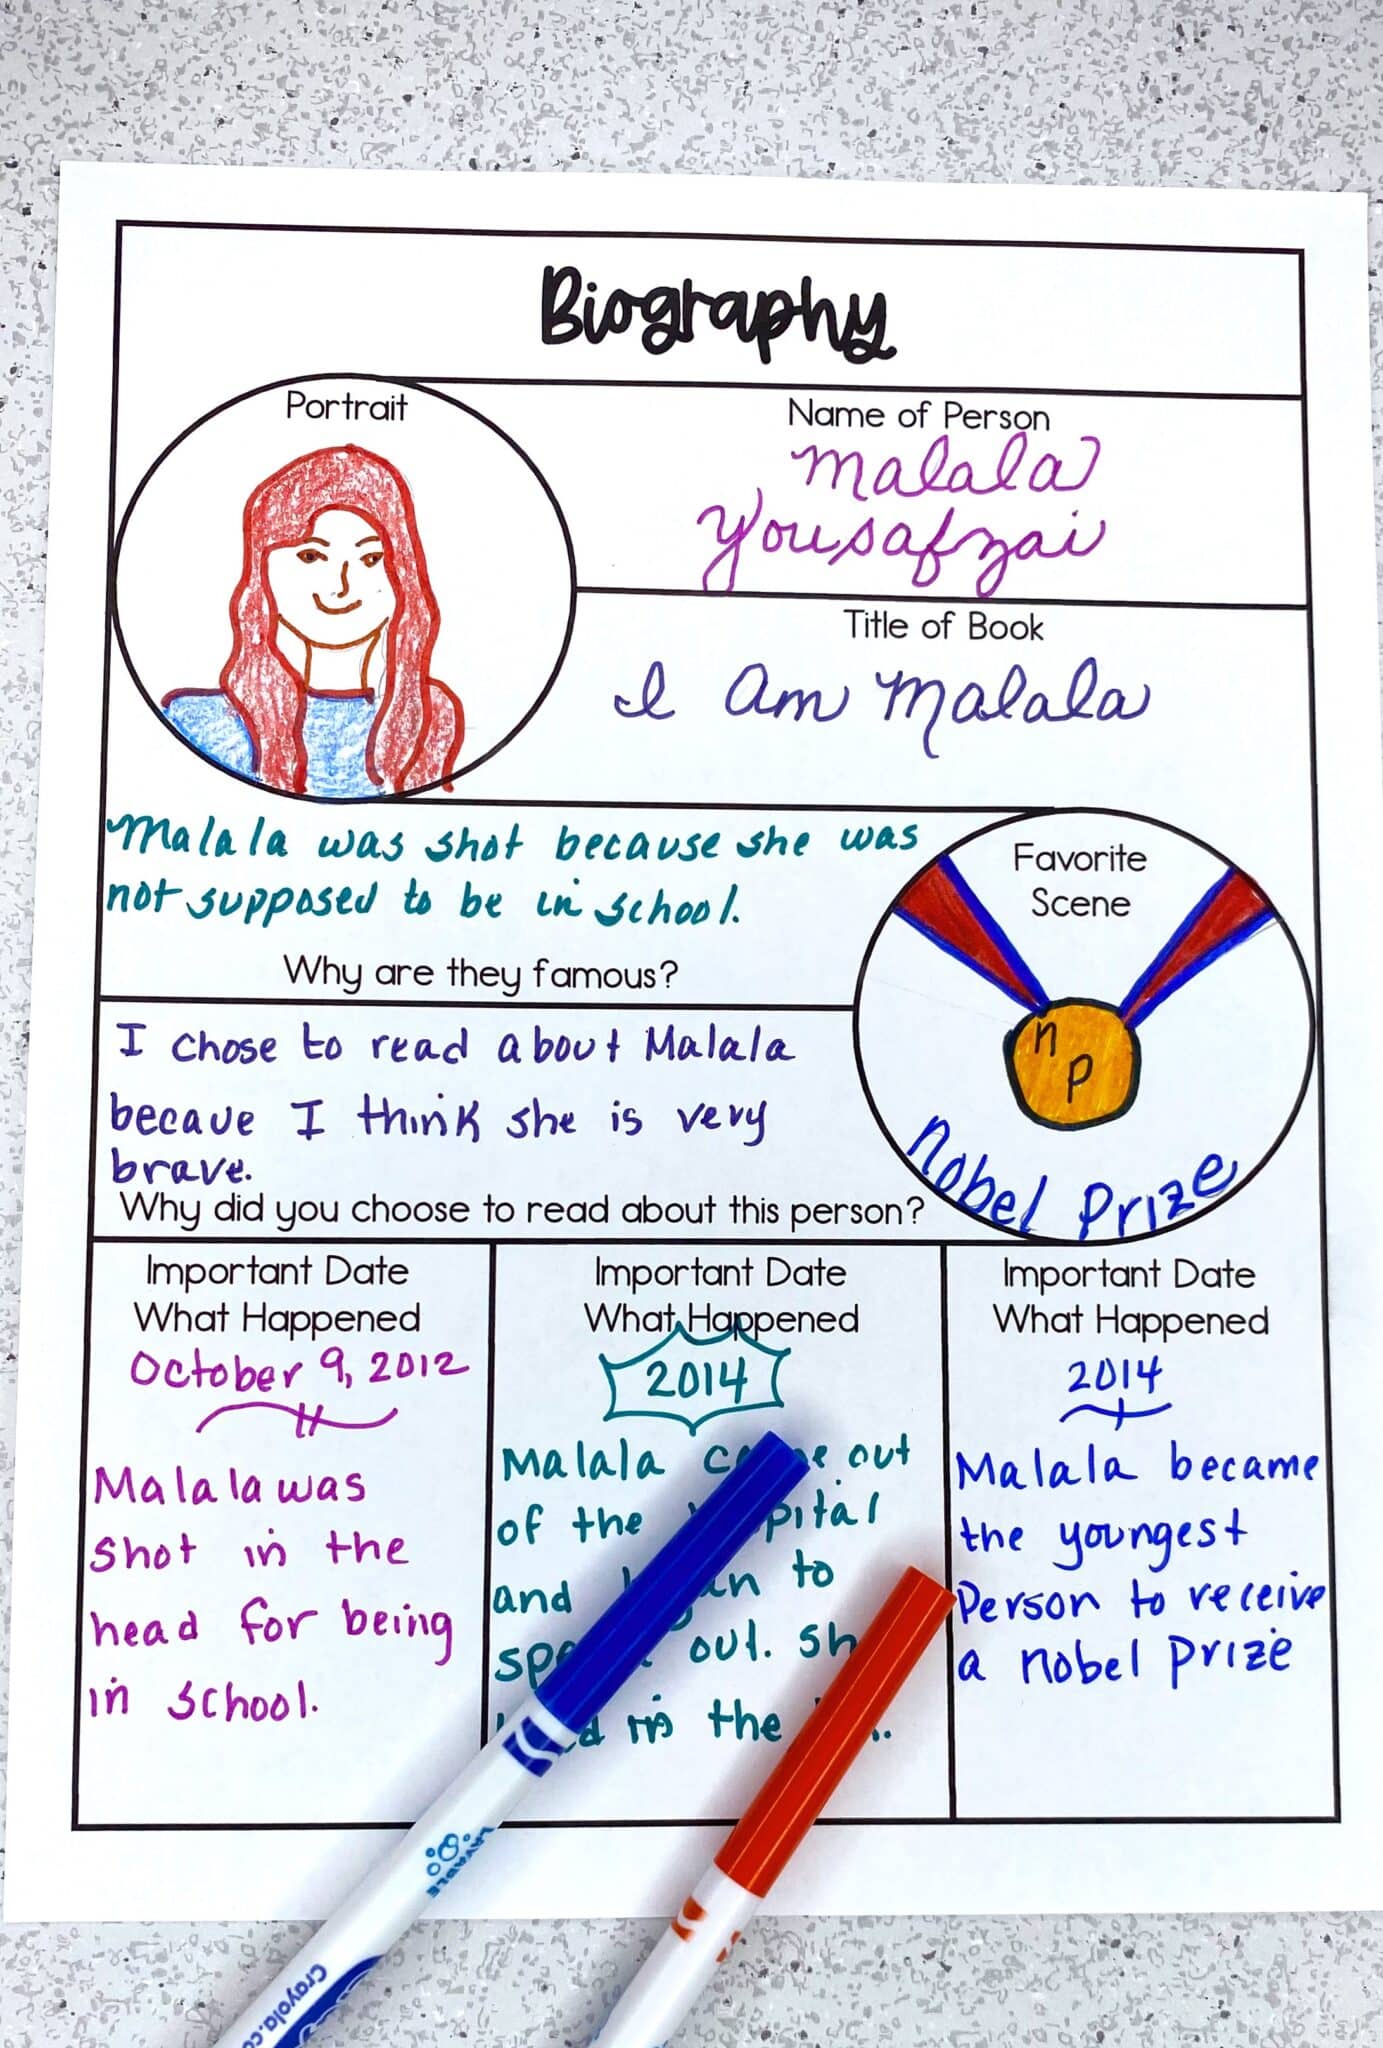 Biography
Portrait
Name of Person
Malala
Yousafzai
Title of Book
I Am Malala
Malala was shot because she was
not supposed to be in school.
Why are they famous?
Favorite
Scene
n
P
Nobel Prize
I chose to read about Malala
becaue I think she is very
brave.
Why did you choose to read about this person?
Important Date
What Happened
October 9, 2012
Malala was
shot in the
head for being
in school.
Important Date
What Happened
2014
Malala out
of the
and to
out.
in the
Important Date
What Happened
2014
Malala became
the youngest
Person to receive
a nobel prize
WASHABLE
Crayola.co